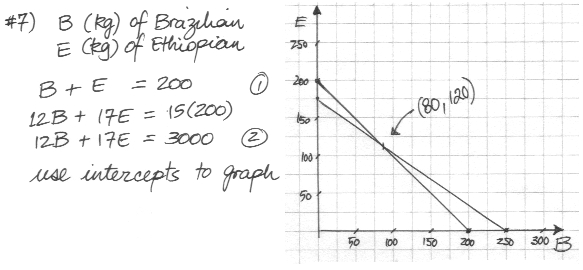 #7) B (kg) of Brazilian
E (kg) of Ethiopian
B + E = 200 ①
12B + 17E = 15(200)
12B + 17E = 3000 ②
use intercepts to graph
E
250
200
150
100
50
(80, 120)
50 100 150 200 250 300 B